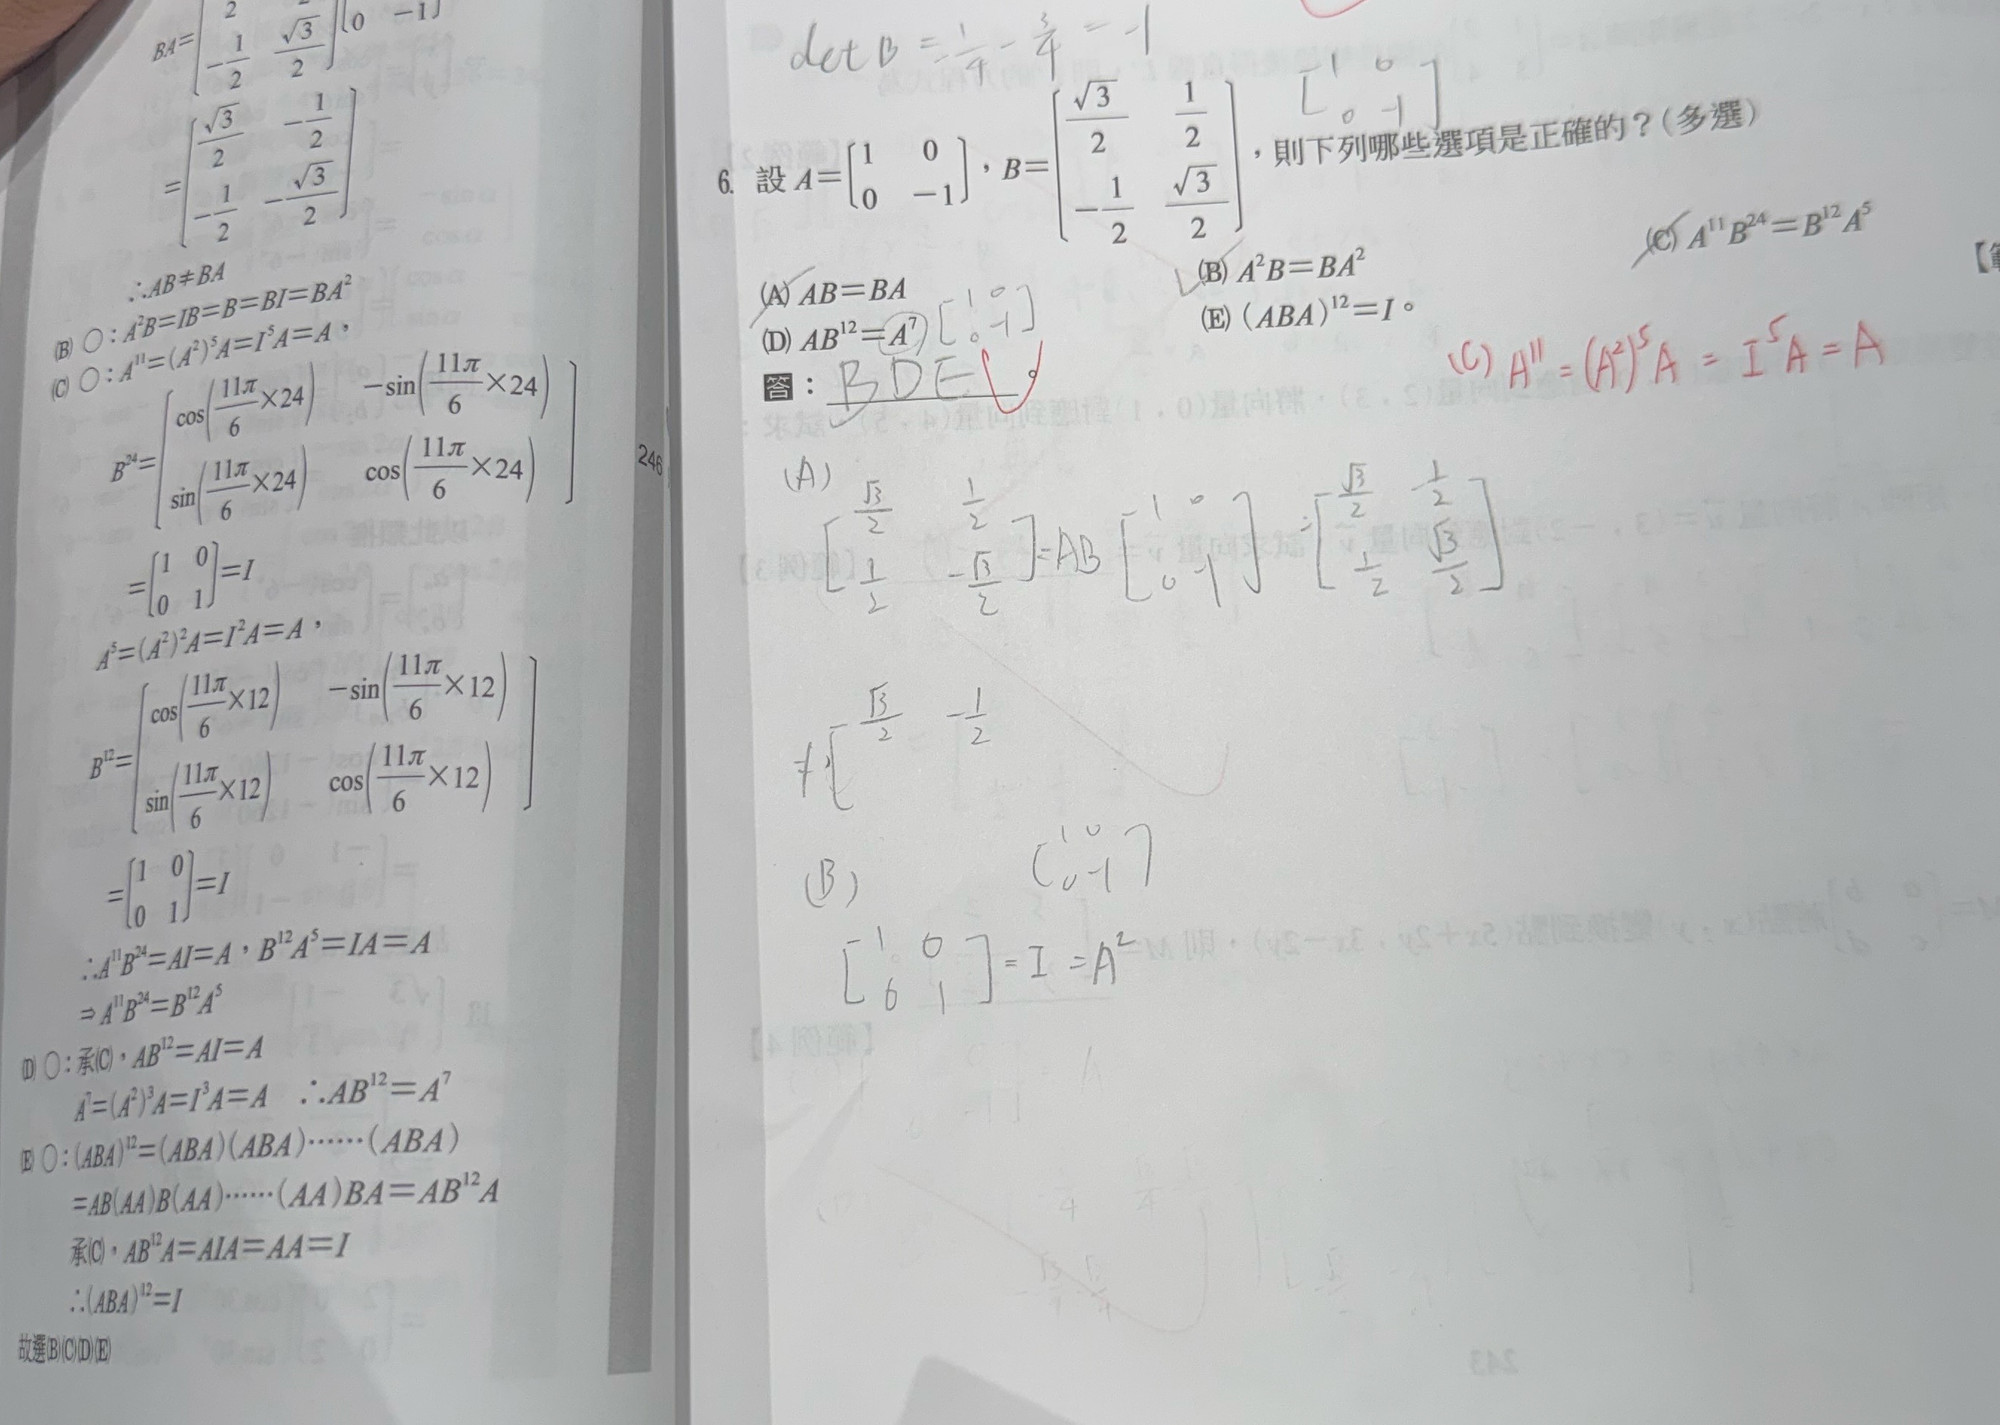 BA=[ 2
-1/2 √3/2][0 -1]
=[√3/2 -1/2
-1/2 -√3/2]
∴AB≠BA
(B) ○:A²B=IB=B=BI=BA²
(C) ○:A¹¹=(A²)⁵A=I⁵A=A,
B²⁴=[cos(11π/6×24) -sin(11π/6×24)
sin(11π/6×24) cos(11π/6×24)]
=[1 0
0 1]=I
A⁵=(A²)²A=I²A=A,
B¹²=[cos(11π/6×12) -sin(11π/6×12)
sin(11π/6×12) cos(11π/6×12)]
=[1 0
0 1]=I
∴A¹¹B²⁴=AI=A,B¹²A⁵=IA=A
⇒A¹¹B²⁴=B¹²A⁵
(D) ○:承(C),AB¹²=AI=A
A⁷=(A²)³A=I³A=A ∴AB¹²=A⁷
(E) ○:(ABA)¹²=(ABA)(ABA)……(ABA)
=AB(AA)B(AA)……(AA)BA=AB¹²A
承(C),AB¹²A=AIA=AA=I
∴(ABA)¹²=I
故選(B)(C)(D)(E)
246
det B = 1/4 - 3/4 = -1
[1 0
0 -1]
6. 設 A=[1 0
0 -1],B=[√3/2 1/2
-1/2 √3/2],則下列哪些選項是正確的?(多選)
(A) AB=BA
(B) A²B=BA²
(C) A¹¹B²⁴=B¹²A⁵
(D) AB¹²=A⁷
[1 0
0 -1]
(E) (ABA)¹²=I。
答:BDE。
(C) A¹¹ = (A²)⁵A = I⁵A = A
(A)
[√3/2 1/2
1/2 -√3/2]=AB [1 0
0 -1] =[√3/2 -1/2
1/2 √3/2]
≠[√3/2 -1/2
(B)
[1 0
0 -1]
[1 0
0 1] = I = A²